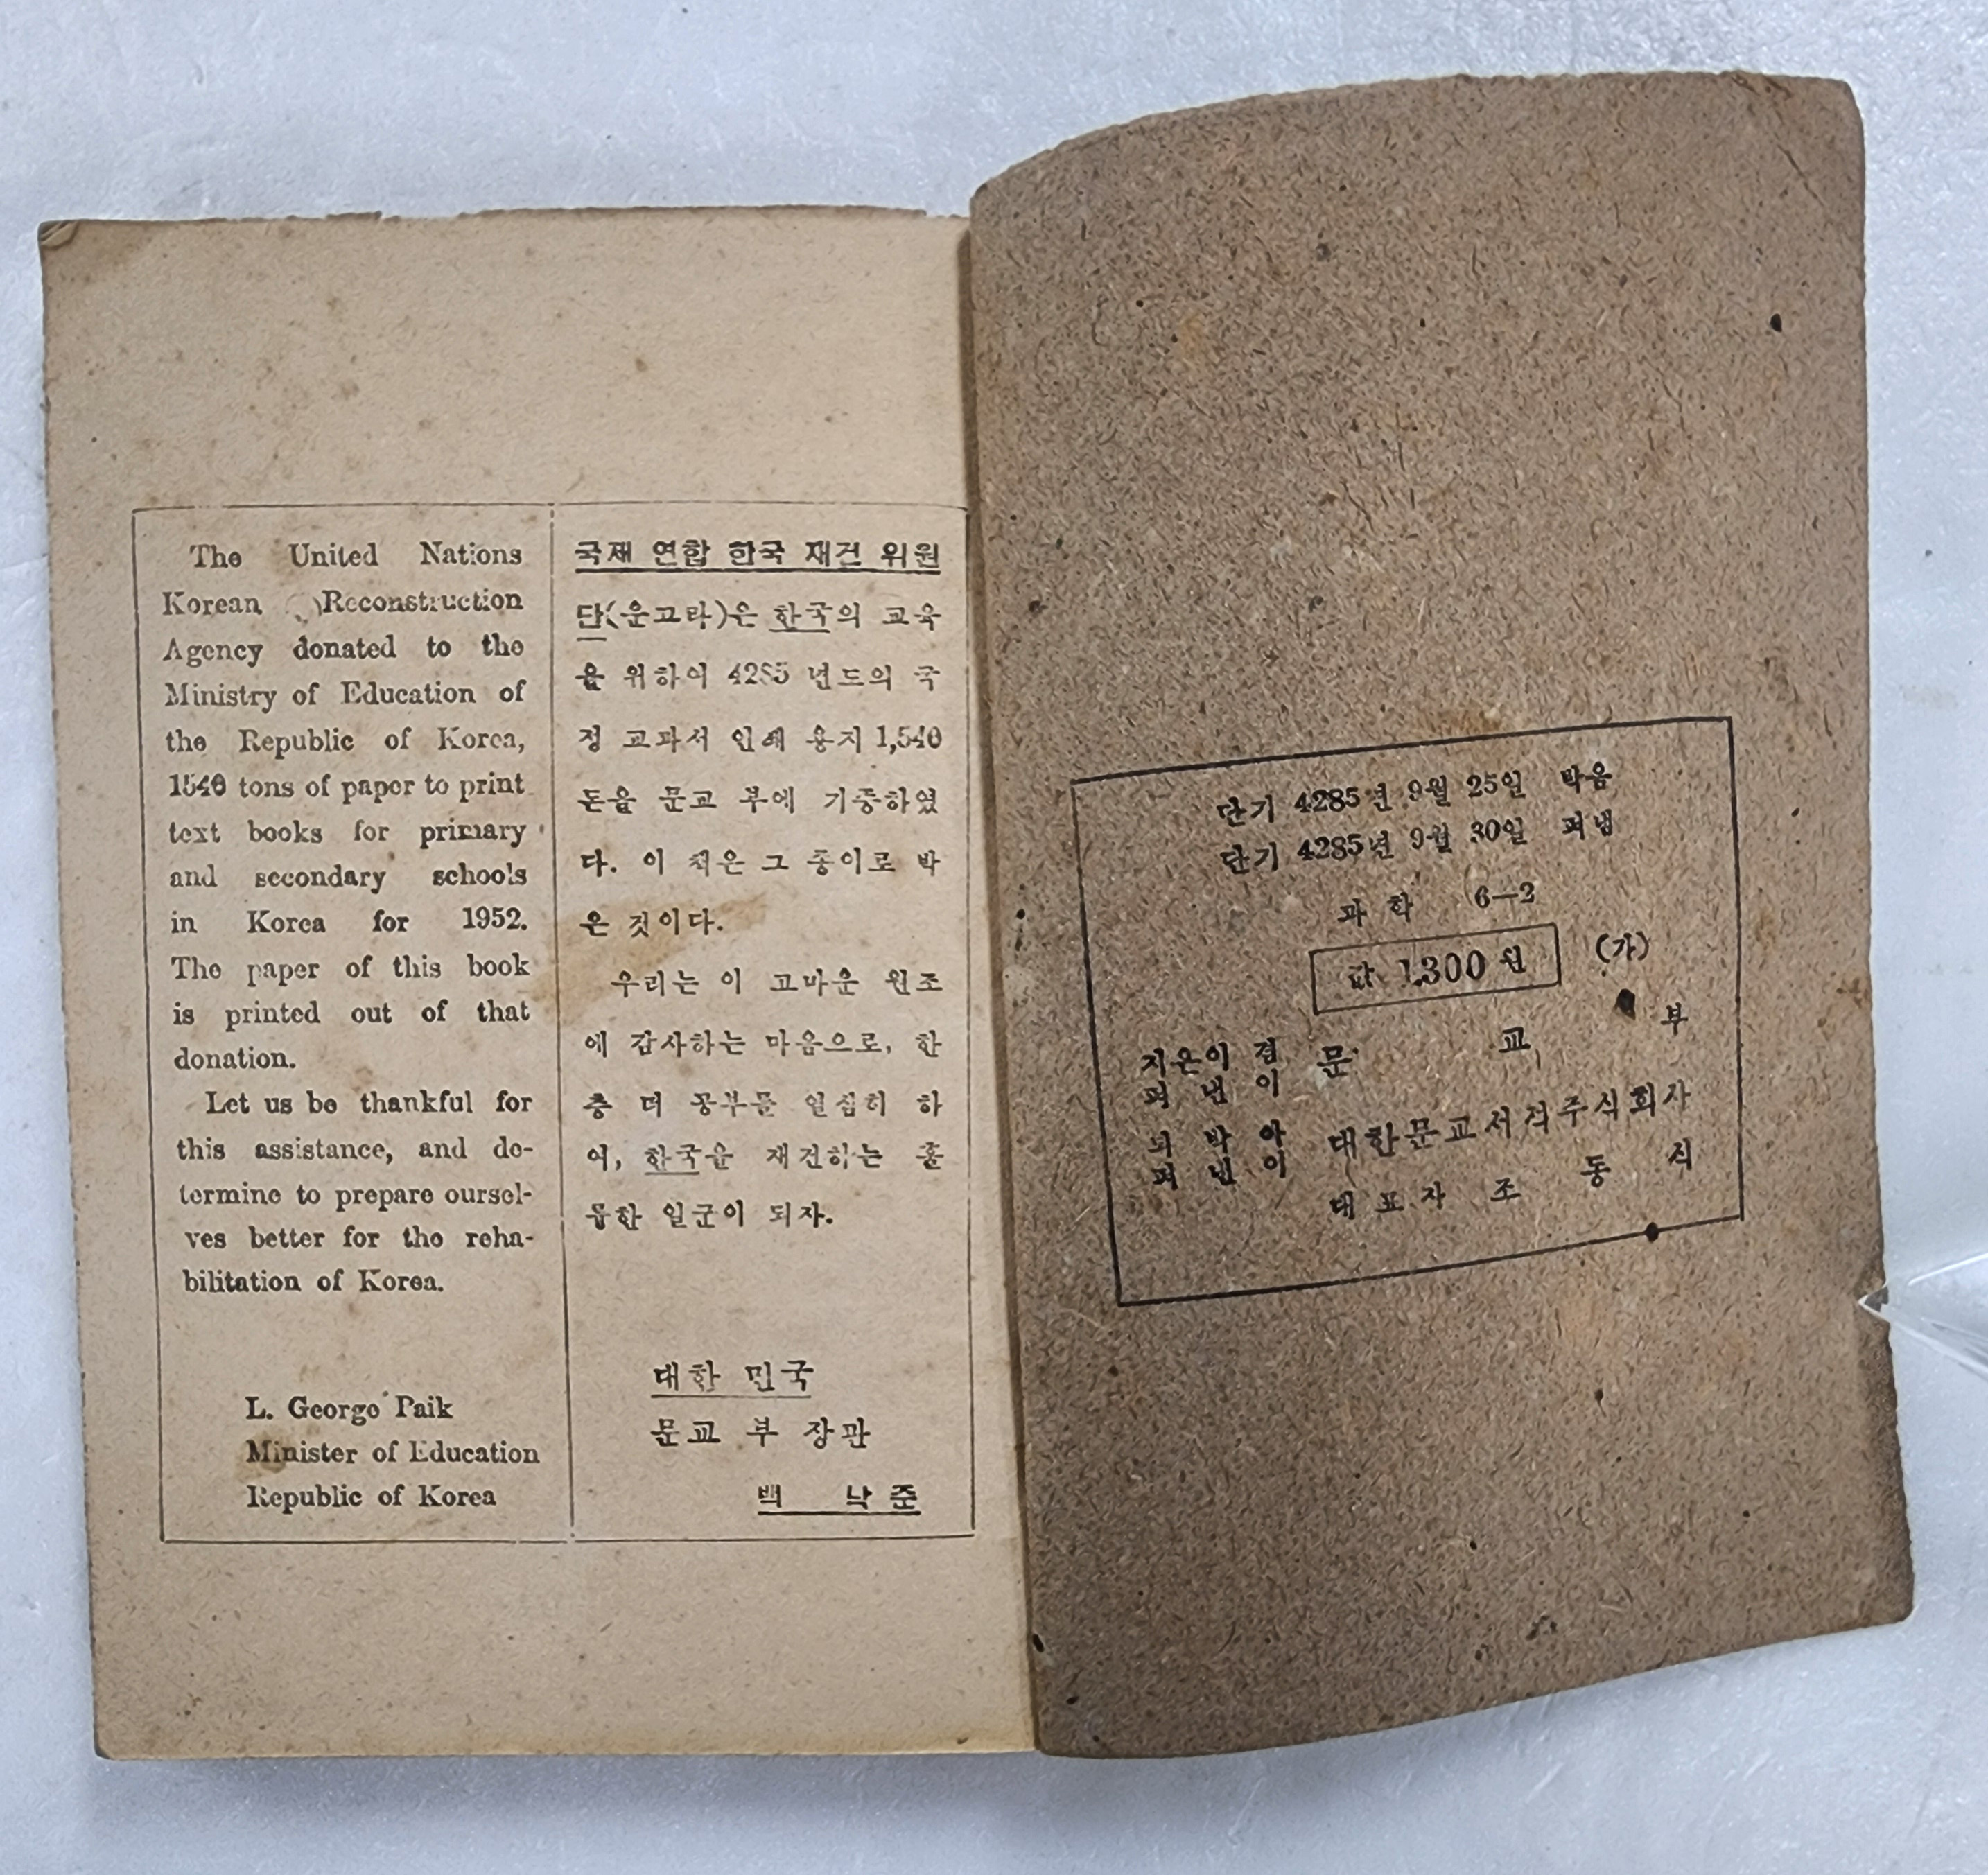 The United Nations
Korean Reconstruction
Agency donated to the
Ministry of Education of
the Republic of Korea,
1540 tons of paper to print
text books for primary
and secondary schools
in Korea for 1952.
The paper of this book
is printed out of that
donation.
Let us be thankful for
this assistance, and de-
termine to prepare oursel-
ves better for the reha-
bilitation of Korea.
L. George Paik
Minister of Education
Republic of Korea
국제 연합 한국 재건 위원
단(운끄라)은 한국의 교육
을 위하여 4285 년도의 국
정 교과서 인쇄 용지 1,540
톤을 문교 부에 기증하였
다. 이 책은 그 종이로 박
은 것이다.
우리는 이 고마운 원조
에 감사하는 마음으로, 한
층 더 공부를 열심히 하
여, 한국을 재건하는 훌
륭한 일군이 되자.
대한 민국
문교 부 장관
백 낙 준
단기 4285년 9월 25일 박음
단기 4285년 9월 30일 펴냄
과 학 6—2
값 1,300 원 (가)
지은이 겸
펴 낸 이
문 교 부
박 아
펴 낸 이
대한문교서적주식회사
대 표 자 조 동 식